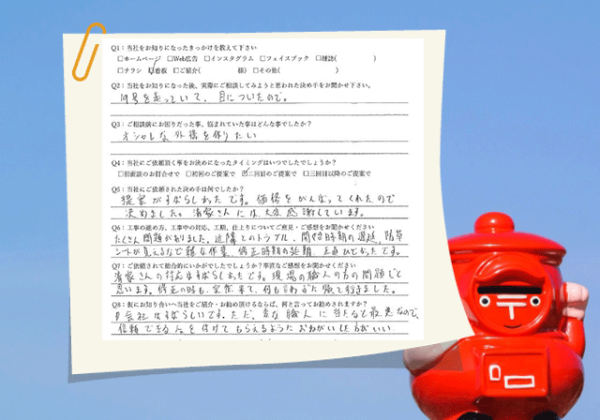 Q1：当社をお知りになったきっかけを教えて下さい
□ホームページ □Web広告 □インスタグラム □フェイスブック □雑誌(　　　)
□チラシ ☑看板 □ご紹介(　　　様) □その他(　　　)
Q2：当社をお知りになった後、実際にご相談してみようと思われた決め手をお聞かせ下さい。
19号を走っていて、目についたので。
Q3：ご相談前にお困りだった事、悩まれていた事はどんな事でしたか？
オシャレな外構を作りたい
Q4：当社にご依頼頂く事をお決めになったタイミングはいつでしたでしょうか？
□初面談のお打合せで □初回のご提案で ☑二回目のご提案で □三回目以降のご提案で
Q5：当社にご依頼された決め手は何でしたか？
提案がすばらしかったです。価格をがんばってくれたので
決めました。 さんには、大変感謝しています。
Q6：工事の進め方、工事中の対応、工期、仕上りについてご意見・ご感想をお聞かせください
たくさん問題がありました。近隣とのトラブル、開始時期の遅延、
が見えるなど雑な作業、修正時期の延期
Q7：ご依頼されて総合的にいかがでしたでしょうか？率直なご感想をお聞かせください
さんの はすばらしかったです。現場の職人の方の問題だと
思います。修正の時も、 来て、何も わず帰って行きました。
Q8：仮にお知り合いへ当社をご紹介・お勧め頂けるならば、何と言ってお勧めされますか？
会社はすばらしいです。ただ、 な職人に当たると最悪なので、
信頼できる人を付けてもらえるようにおねがいした方がいい